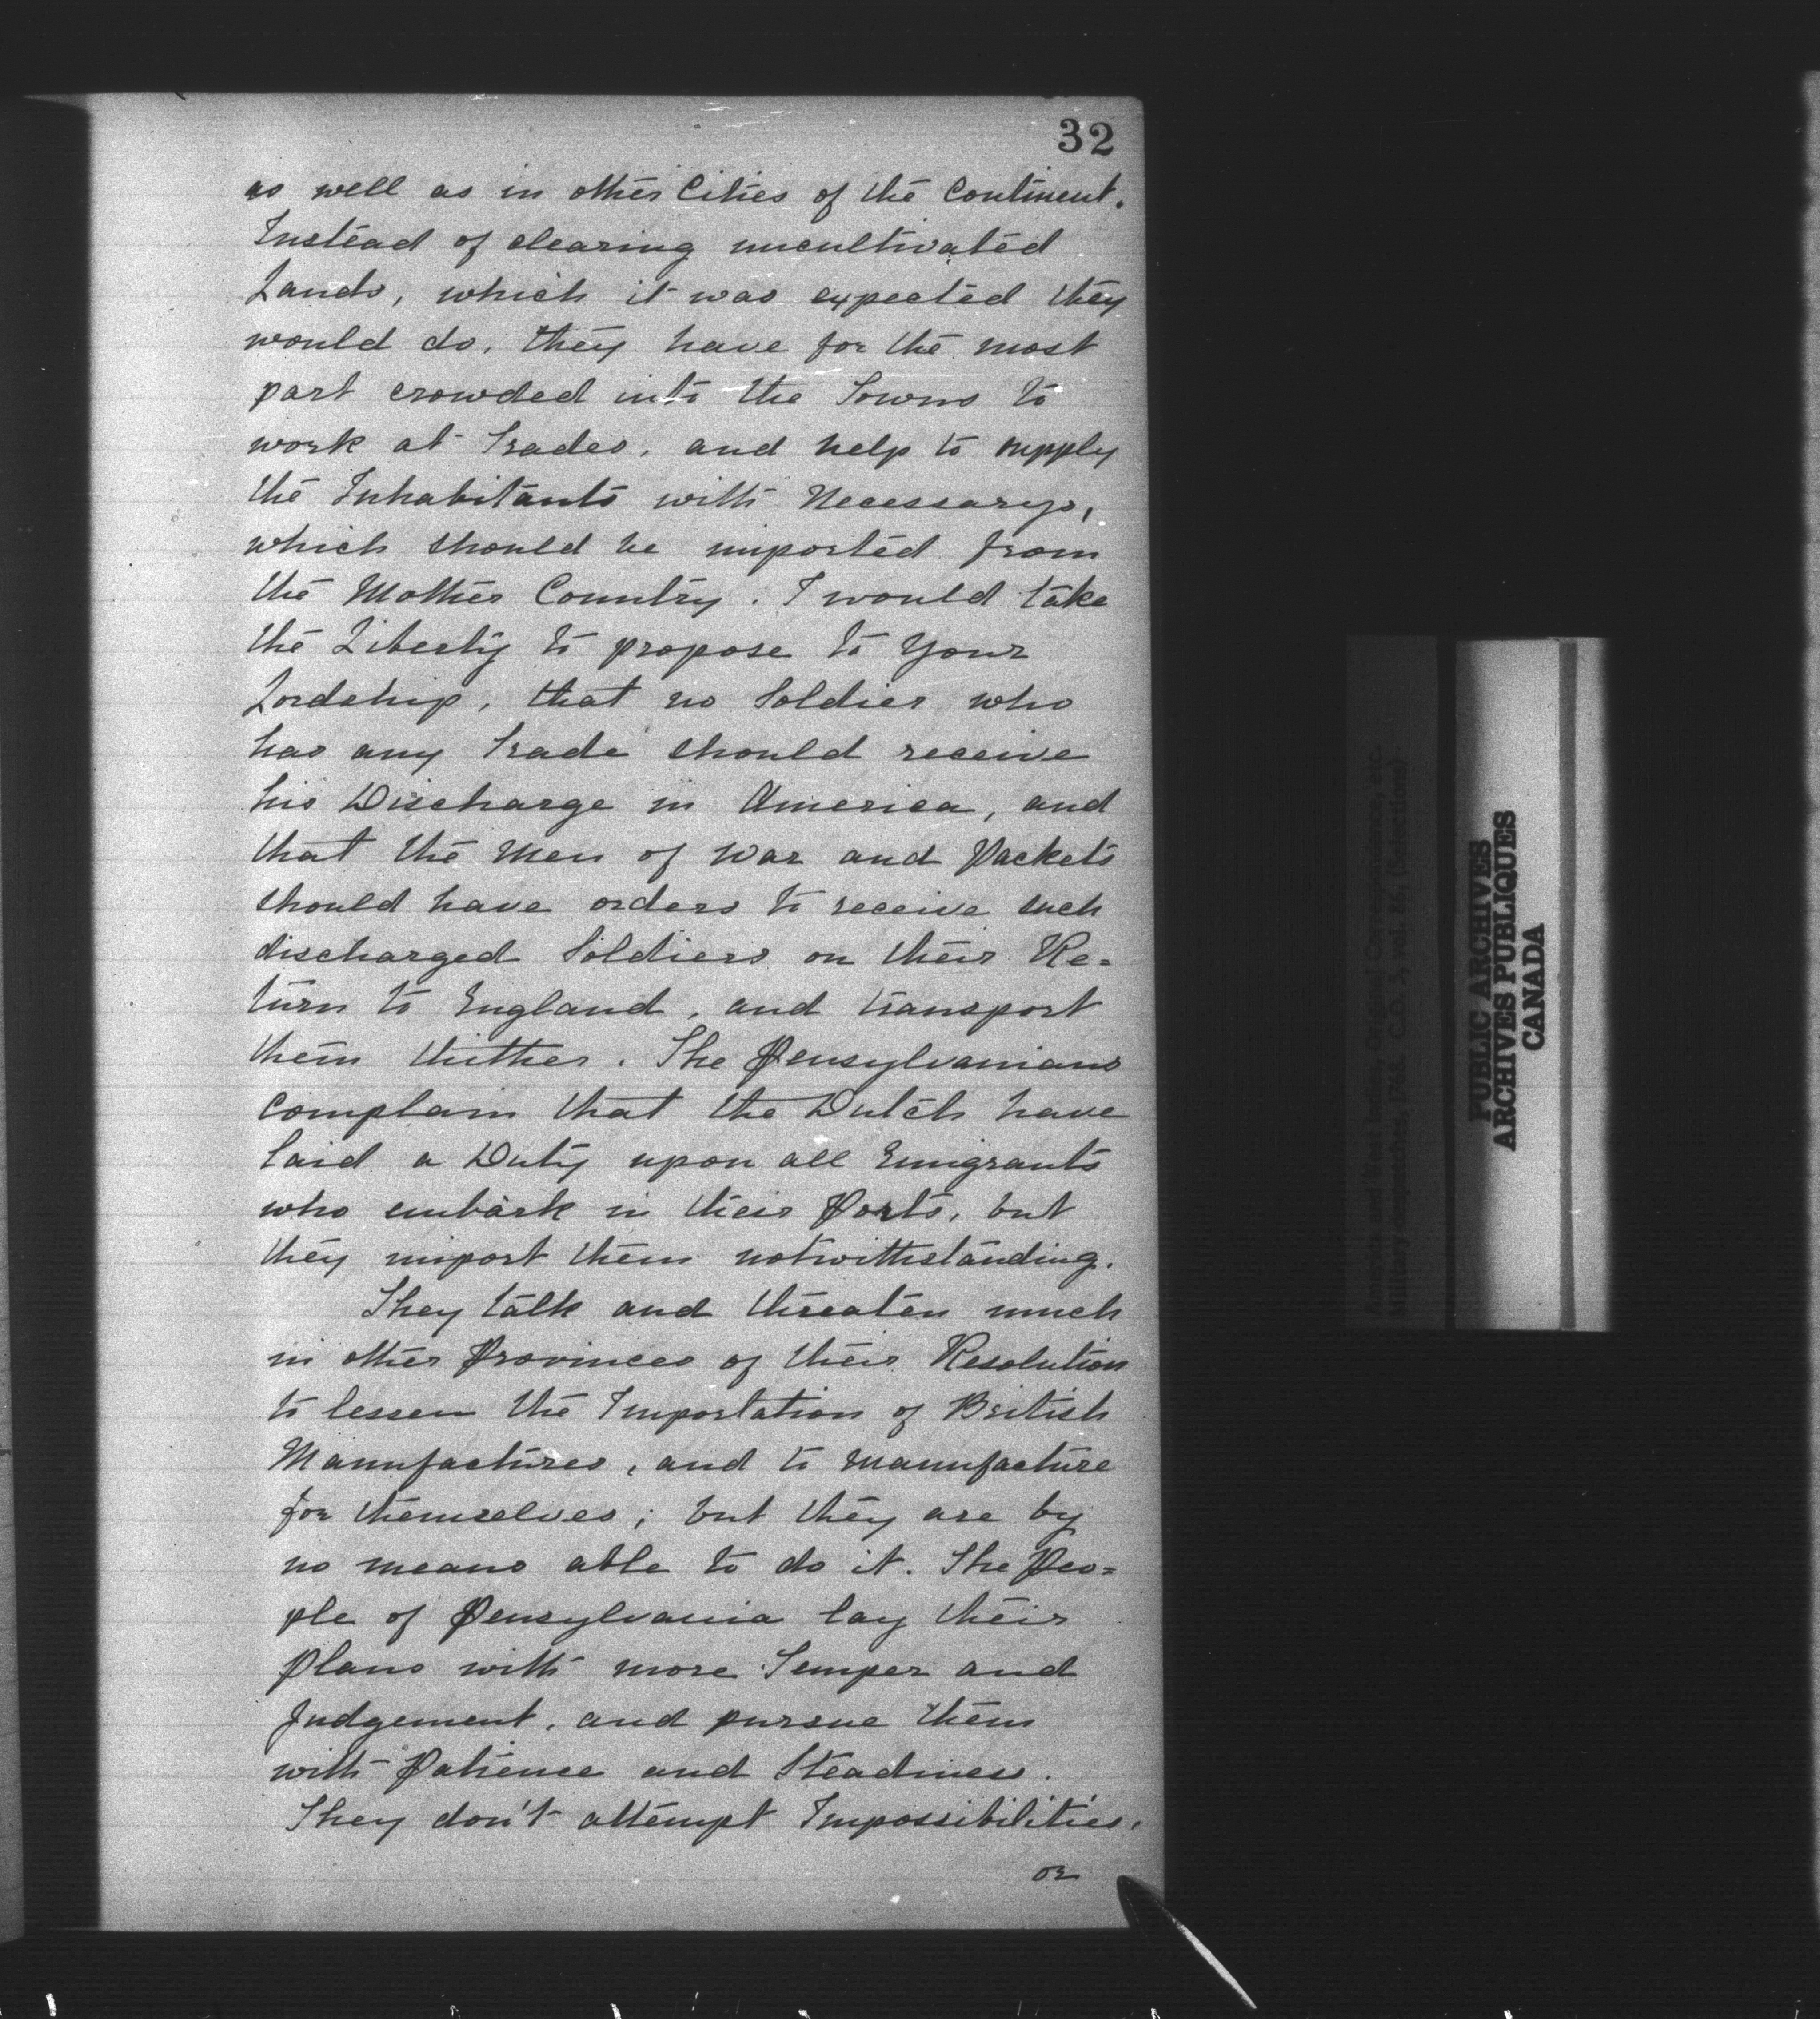 32
as well as in other Cities of the Continent.
Instead of clearing uncultivated
Lands, which it was expected they
would do, they have for the most
part crowded into the Towns to
work at Trades, and help to supply
the Inhabitants with Necessarys,
which should be imported from
the Mother Country. I would take
the Liberty to propose to Your
Lordship, that no Soldier who
has any Trade should receive
his Discharge in America, and
that the Men of War and Packets
should have orders to receive such
discharged Soldiers on their Re=
turn to England, and transport
them thither. The Pensylvanians
complain that the Dutch have
laid a Duty upon all Emigrants
who embark in their Ports, but
they import them notwithstanding.
They talk and threaten much
in other Provinces of their Resolution
to lessen the Importation of British
Manufactures, and to manufacture
for themselves; but they are by
no means able to do it. The Peo=
ple of Pensylvania lay their
Plans with more Temper and
Judgement, and pursue them
with Patience and Steadiness.
They don't attempt Impossibilities,
or
America and West Indies, Original Correspondence, etc.
Military despatches, 1768. C.O. 5, vol. 86, (Selections)
PUBLIC ARCHIVES
ARCHIVES PUBLIQUES
CANADA